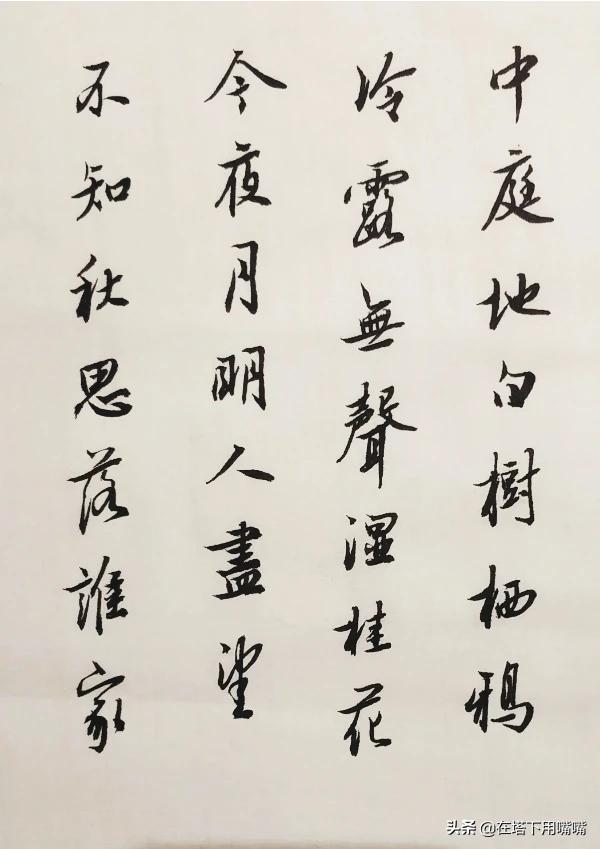 中庭地白樹栖鴉
冷露無聲湿桂花
今夜月明人盡望
不知秋思落誰家
头条 @在塔下用嘴嘴